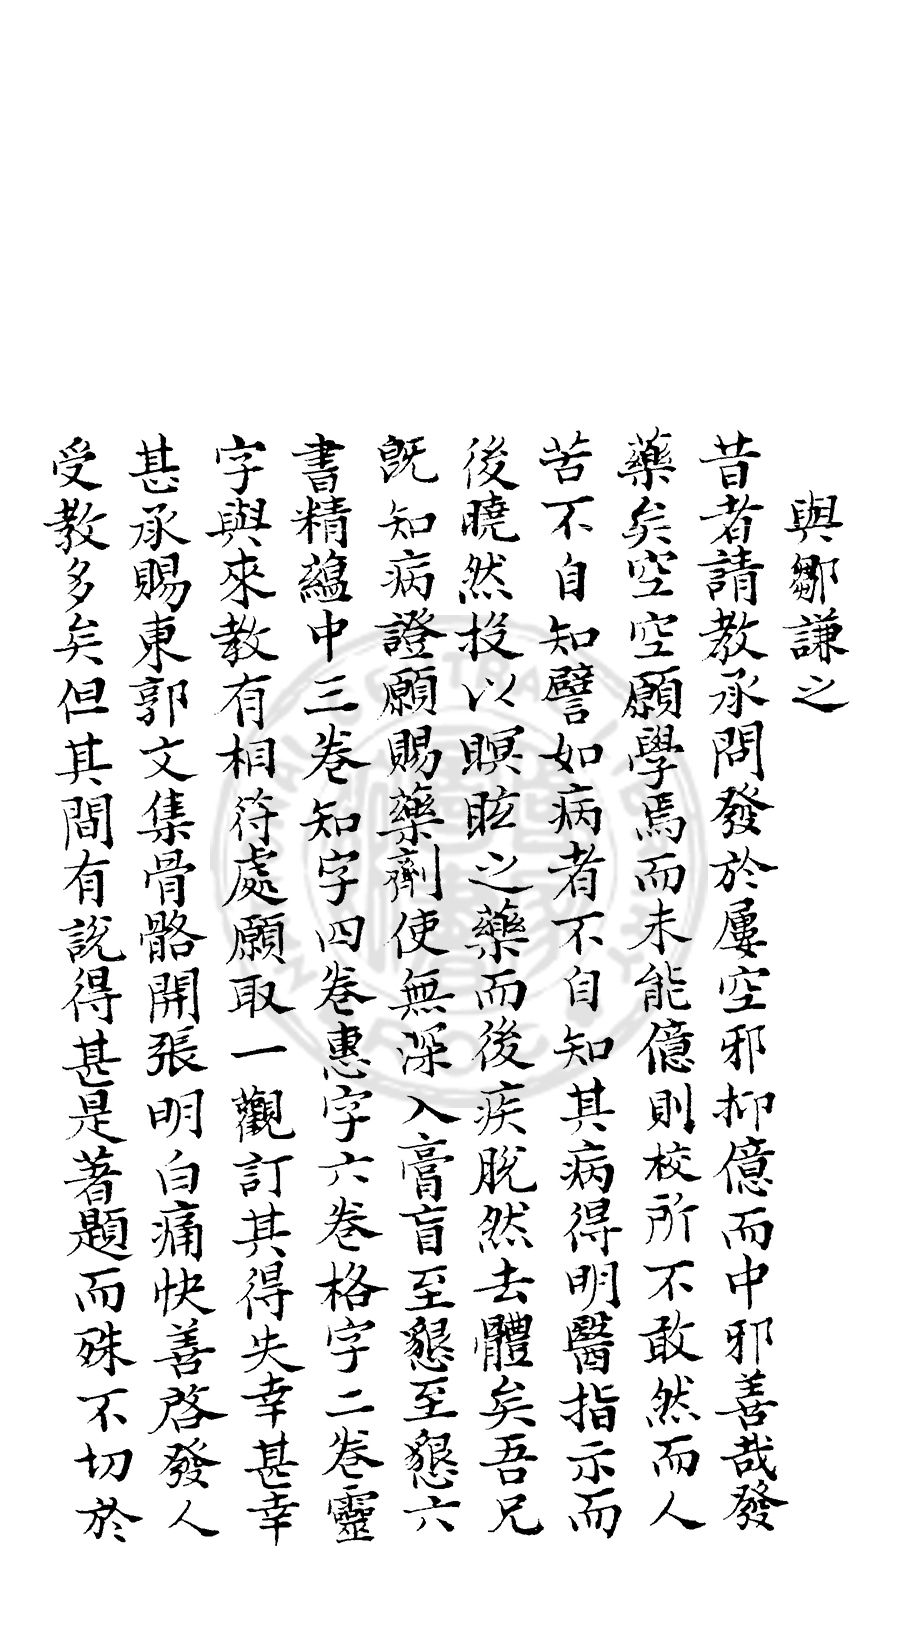 與鄒謙之
昔者請教承問發於屢空邪抑億而中邪善哉發
藥矣空空願學焉而未能億則校所不敢然而人
苦不自知譬如病者不自知其病得明醫指示而
後曉然投以瞑眩之藥而後疾脫然去體矣吾兄
旣知病證願賜藥劑使無深入膏肓至懇至懇六
書精蘊中三卷知字四卷惪字六卷格字二卷靈
字與來教有相符處願取一觀訂其得失幸甚幸
甚承賜東郭文集骨骼開張明白痛快善啓發人
受教多矣但其間有說得甚是著題而殊不切於